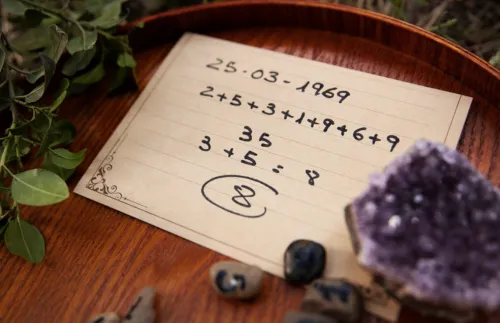 25-03-1969
2+5+3+1+9+6+9
35
3+5=8
8